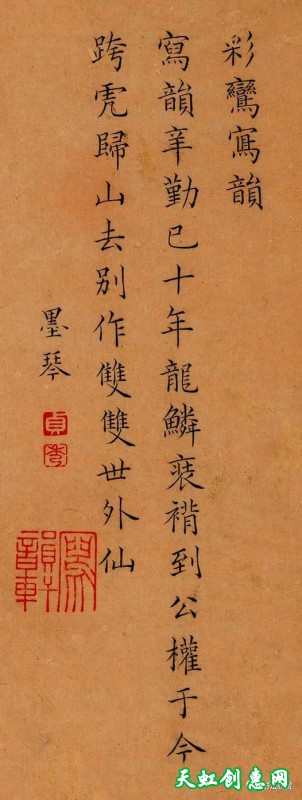 彩鸞寫韻
寫韻辛勤已十年龍鱗裘褙到公權于今
跨虎歸山去别作雙雙世外仙
墨琴
貞
寫韻軒
天虹创惠网